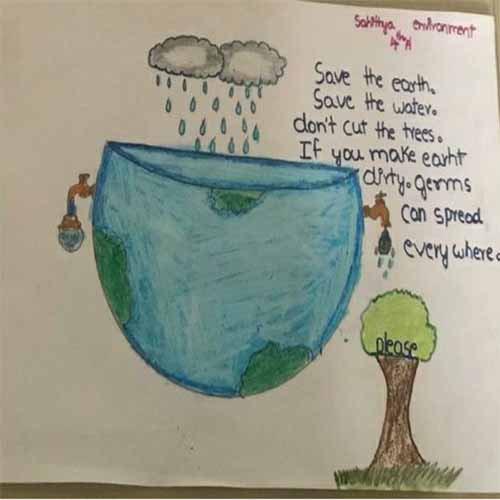 Sahithya environment
4th A
Save the earth.
Save the water.
don't cut the trees.
If you make eart
dirty. germs
can spread
every where.
please